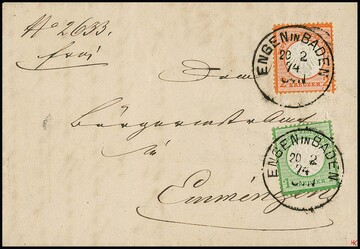 No 2633.
frei
Dem
ENGEN IN BADEN
20 2
74
KREUZER
Bürgermeisteramt
in
ENGEN IN BADEN
20 2
74
1
Emmingen